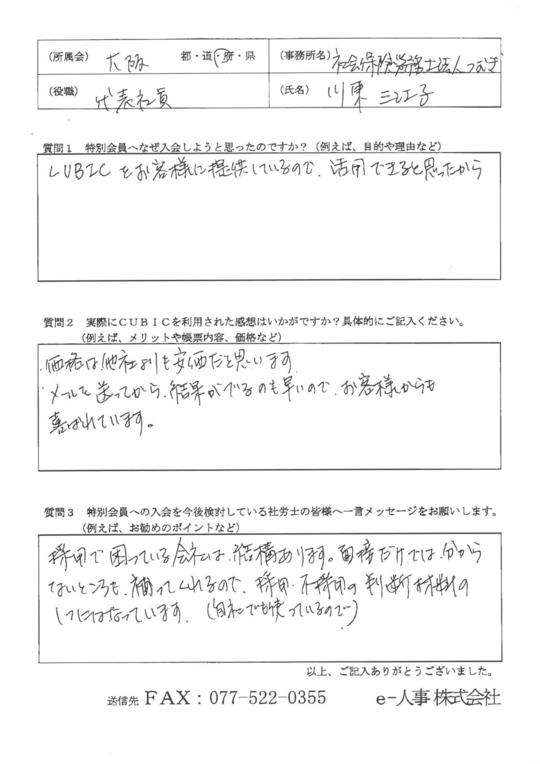 (所属会) 大阪 都・道・府・県 (事務所名) 社会保険労務士法人つむぎ
(役職) 代表社員 (氏名) 川東 三江子
質問1 特別会員へなぜ入会しようと思ったのですか？(例えば、目的や理由など)
CUBICをお客様に提供しているので、活用できると思ったから
質問2 実際にCUBICを利用された感想はいかがですか？具体的にご記入ください。
(例えば、メリットや帳票内容、価格など)
・価格は他社よりも安価だと思います
・メールを送ってから、結果がでるのも早いので、お客様からも
喜ばれています。
質問3 特別会員への入会を今後検討している社労士の皆様へ一言メッセージをお願いします。
(例えば、お勧めのポイントなど)
採用で困っている会社は、結構あります。面接だけでは、分から
ないところも、補ってくれるので、採用・不採用の判断材料の
1つにはなっています。(自社でも使っているので)
以上、ご記入ありがとうございました。
送信先 FAX：077-522-0355 e-人事株式会社